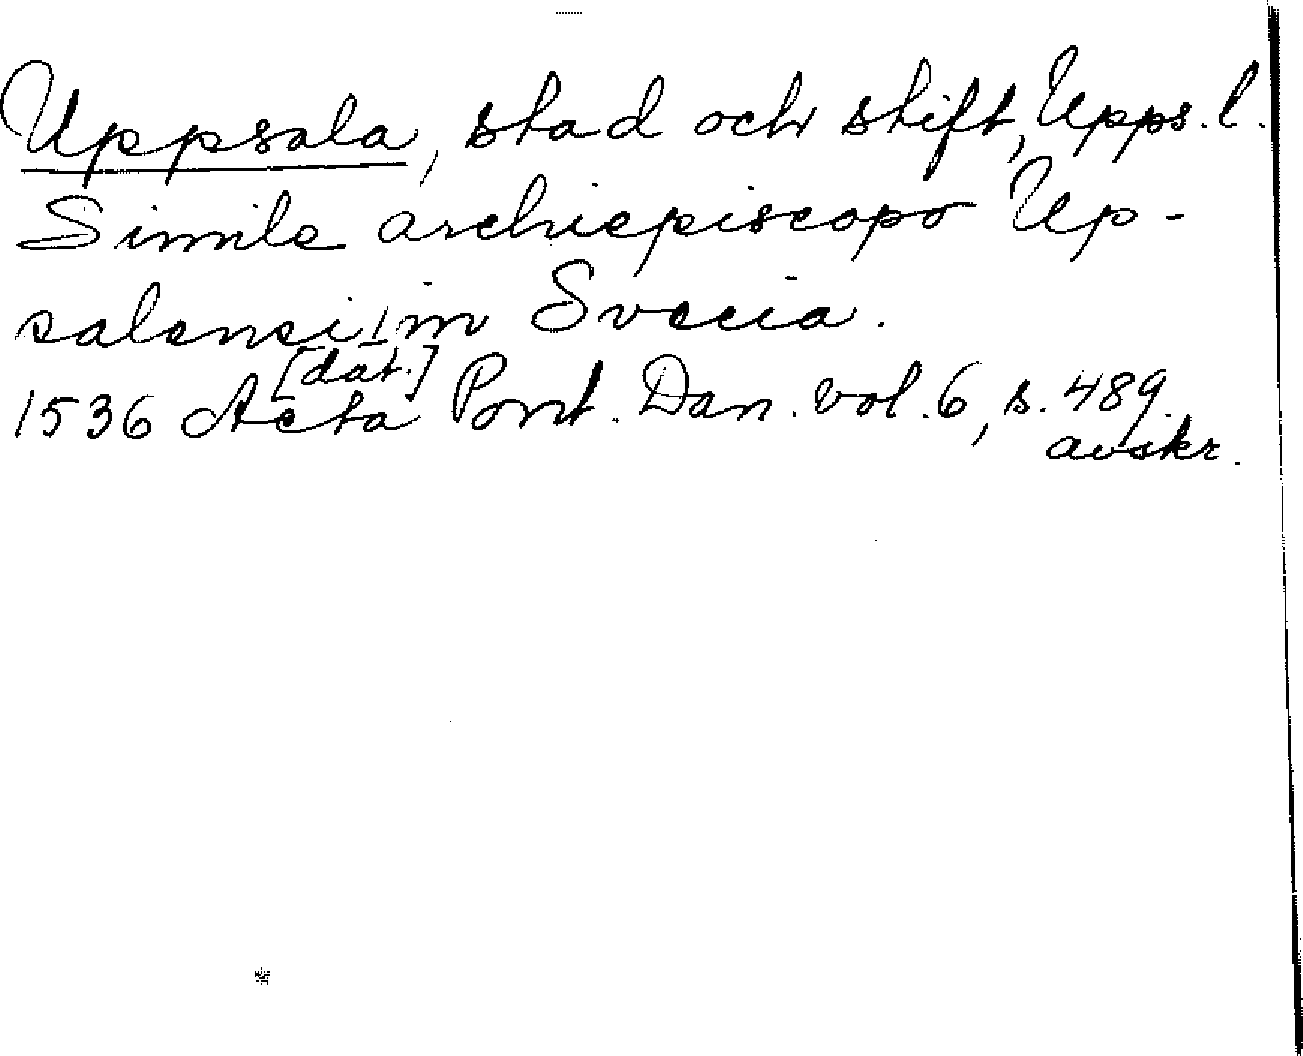 Uppsala, stad och stift, Upps. l.
Simile archiepiscopo Up-
salensi in Svecia.
[dat.]
1536 Acta Pont. Dan. vol. 6, s. 489.
avskr.